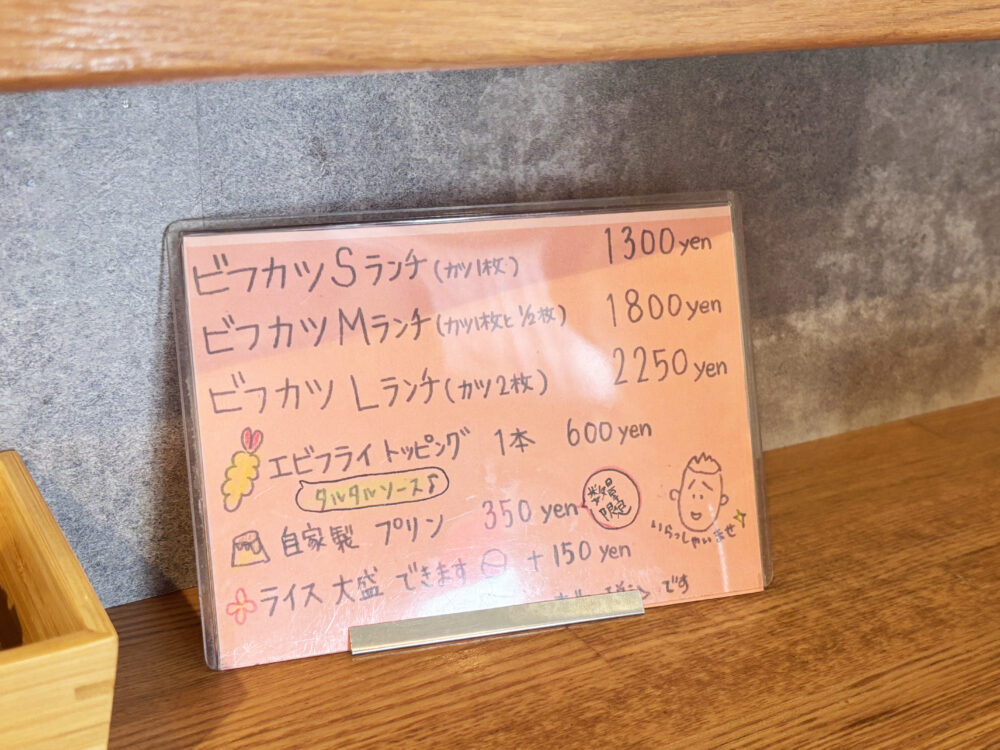 ビフカツSランチ(カツ1枚) 1300yen
ビフカツMランチ(カツ1枚と1/2枚) 1800yen
ビフカツ Lランチ(カツ2枚) 2250yen
エビフライトッピング 1本 600yen
タルタルソース♪
自家製 プリン 350yen
数量限定
いらっしゃいませ
ライス 大盛 できます +150yen
です